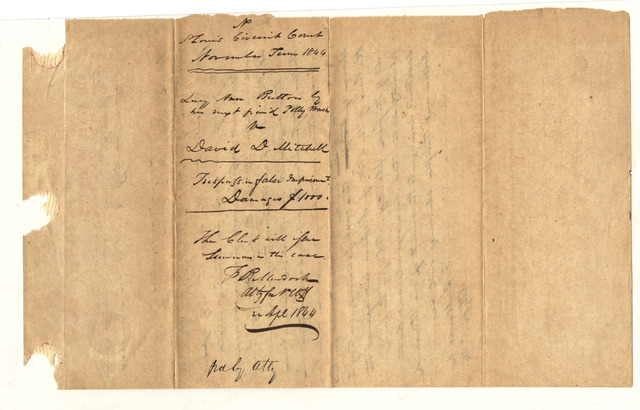 N
St Louis Circuit Court
November Term 1844
Lucy Ann Britton by
her next friend Polly Wash
vs
David D. Mitchell
Trespass in false Imprisonmt
Damages $1000.
The Clerk will issue
Summons in this case
Atty for Plff
Apl 1844
pd by Atty